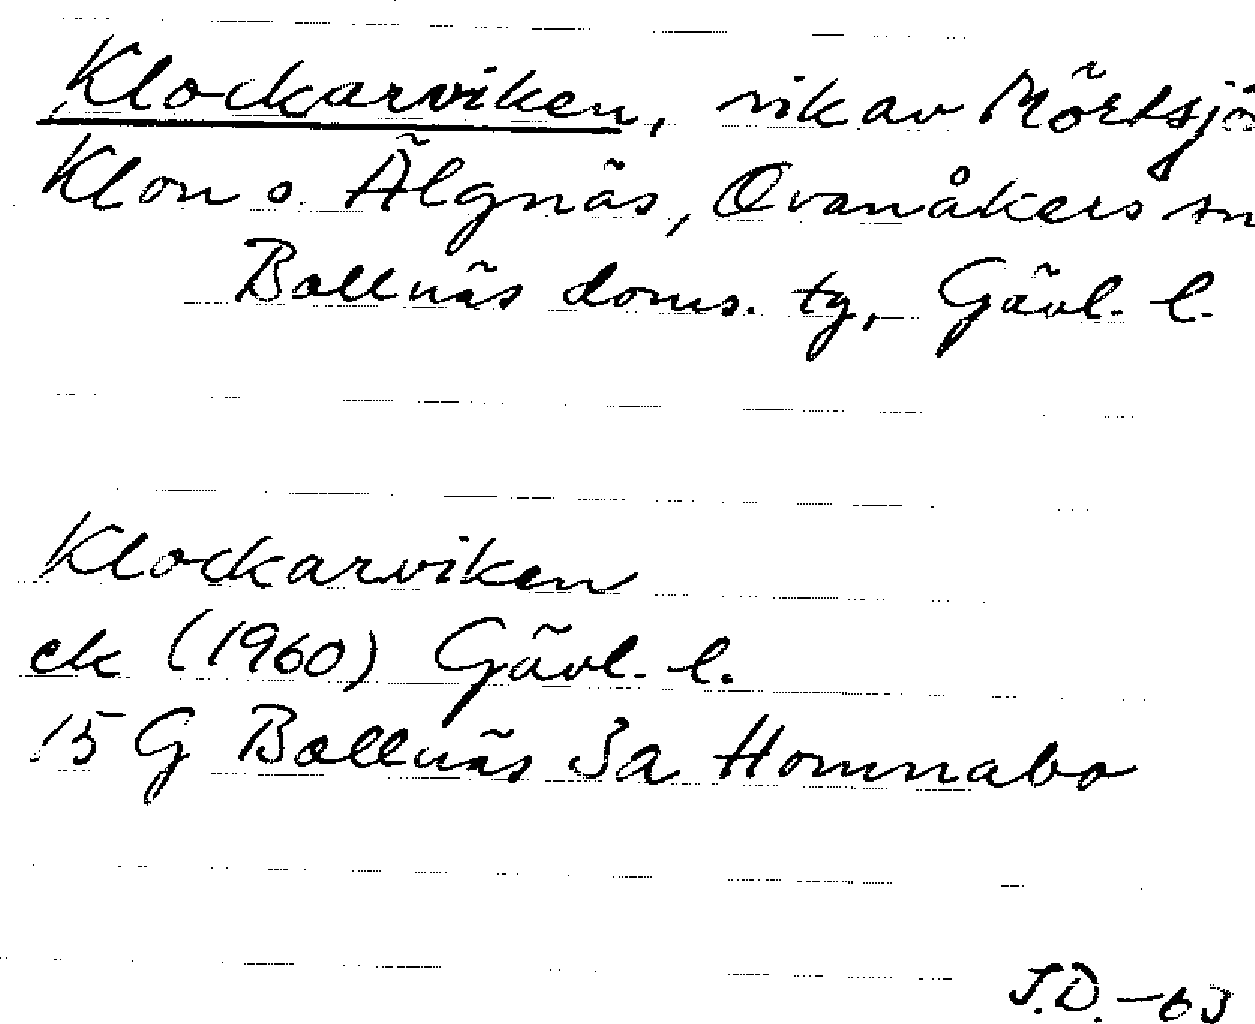 Klockarviken, vik av Mörtsjö
Klon o. Älgnäs, Ovanåkers sn
Bollnäs doms. tg, Gävl. l.
Klockarviken
ek (1960) Gävl. l.
15 G Bollnäs 3a Homnabo
J.D. -63